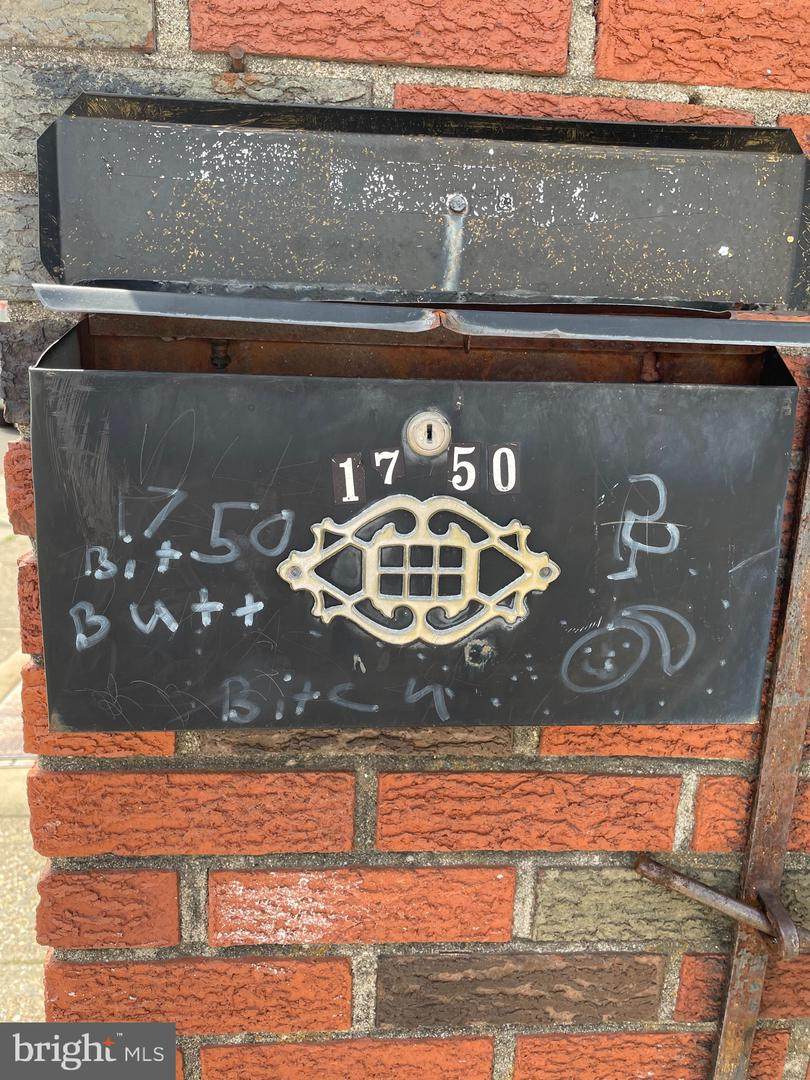 1750
1750
Bit
Butt
Bitch
bright MLS